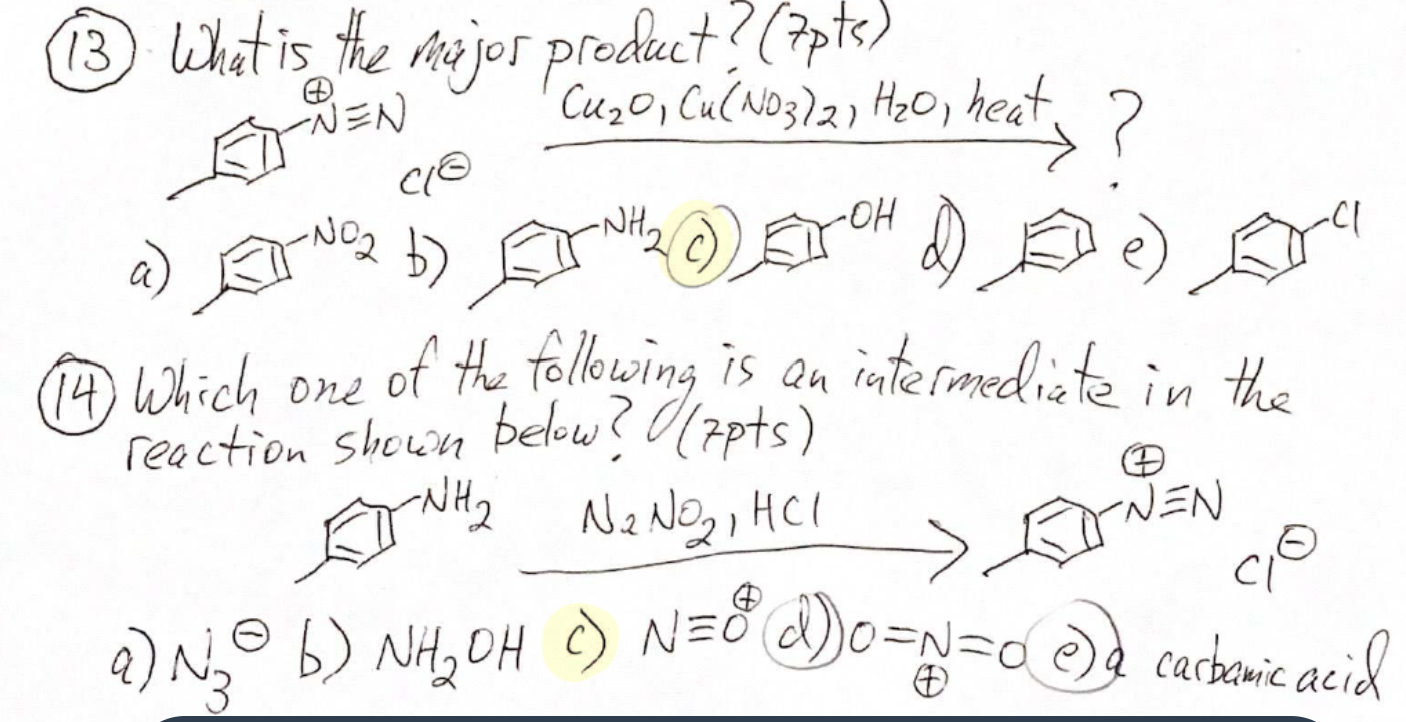 13 What is the major product? (7pts)
⊕
N≡N Cu₂O, Cu(NO₃)₂, H₂O, heat ?
Cl⊖
a) NO₂ b) NH₂ c) OH d) e) Cl
14 Which one of the following is an intermediate in the
reaction shown below? (7pts)
⊕
NH₂ NaNO₂, HCl N≡N
Cl⊖
a) N₃⊖ b) NH₂OH c) N≡O⊕ d) O=N=O e) a carbamic acid
⊕